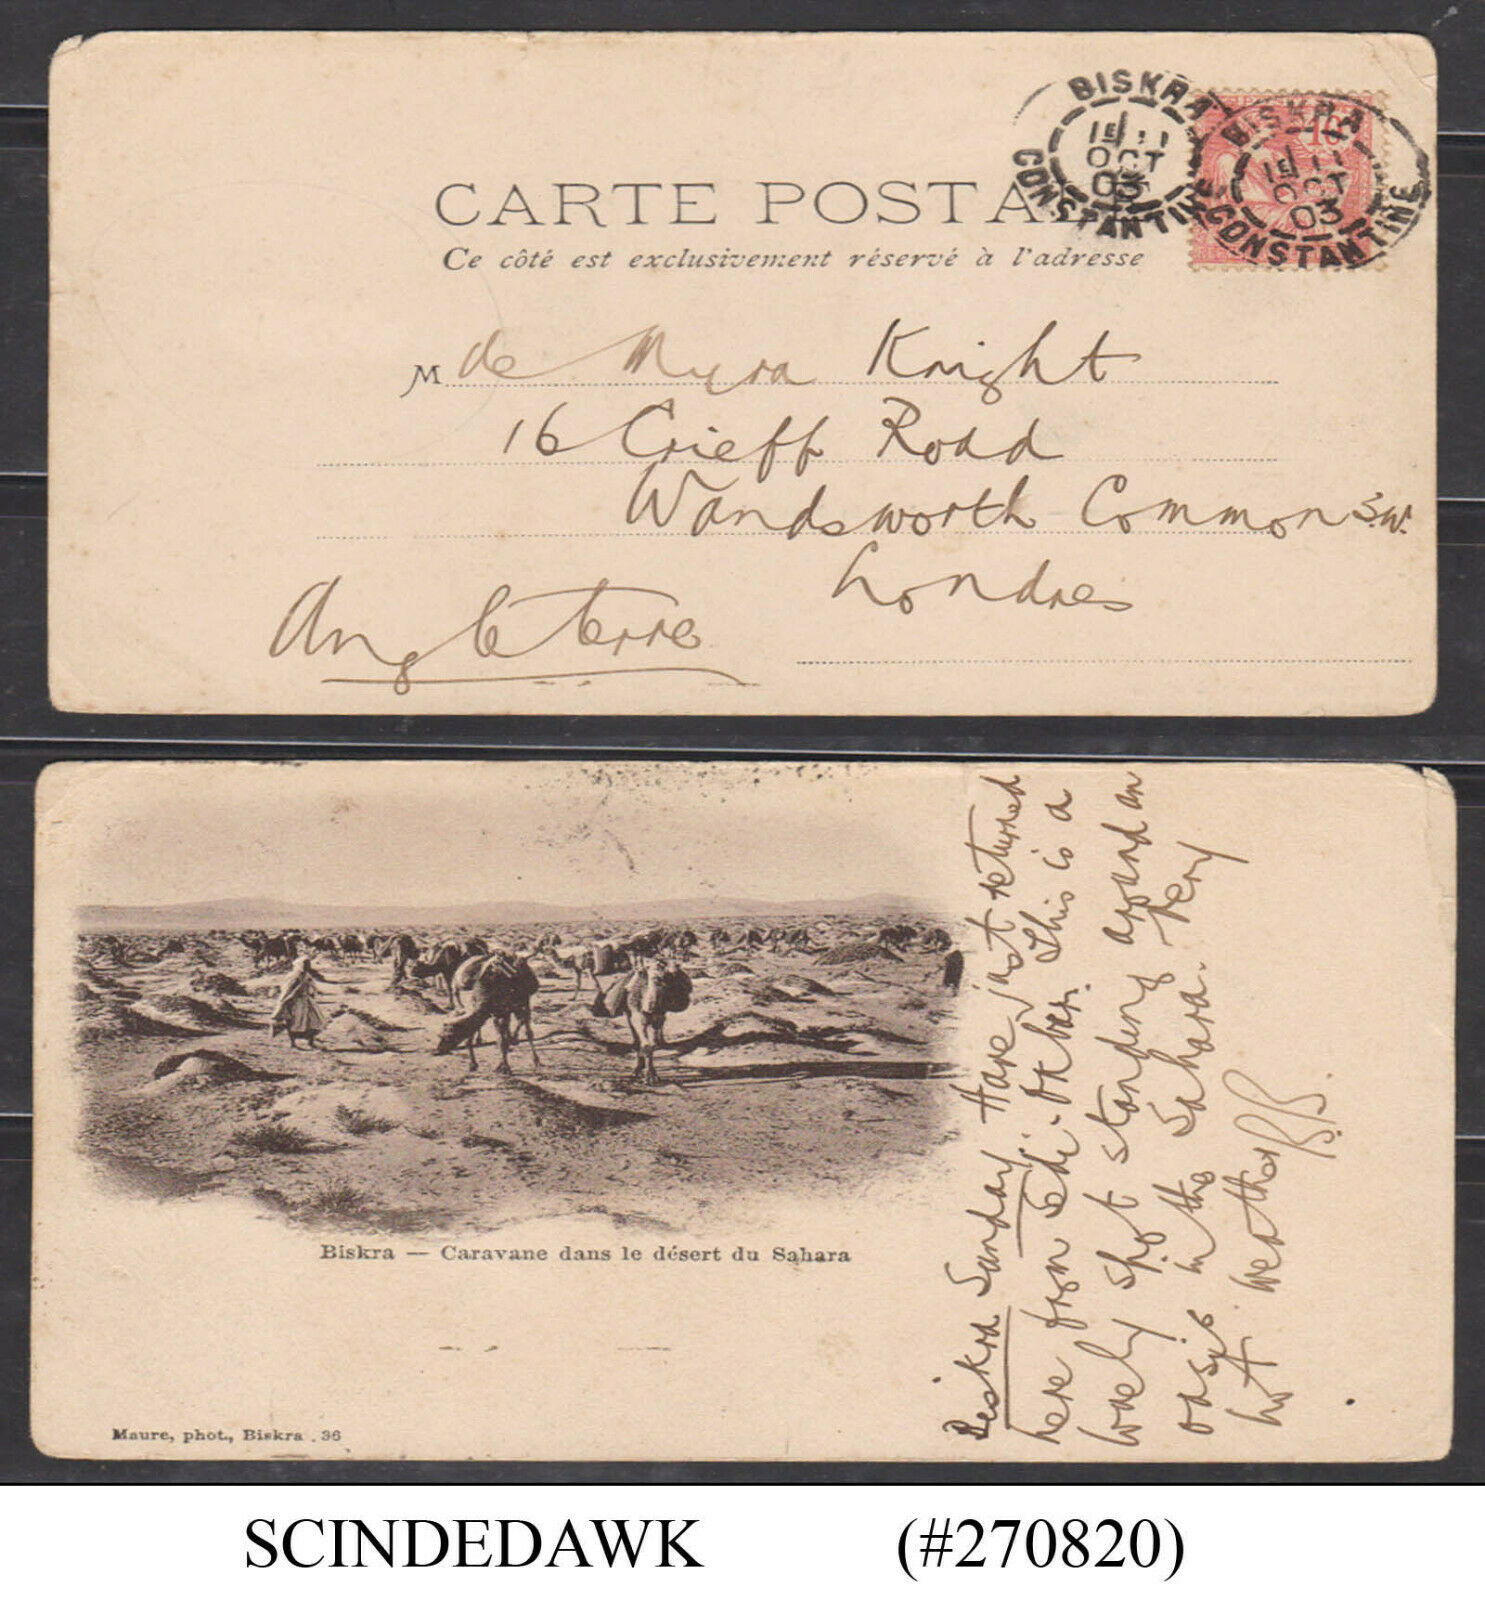 CARTE POSTALE
Ce côté est exclusivement réservé à l'adresse
BISKRA
1E/11
OCT
03
CONSTANTINE
BISKRA
1E/11
OCT
03
CONSTANTINE
M de Myra Knight
16 Crieff Road
Wandsworth Common S.W.
Londres
Angleterre
Biskra — Caravane dans le désert du Sahara
Maure, phot., Biskra . 36
Biskra Sunday Have just returned
here from Sidi-Okber. This is a
lovely spot standing around an
oasis in the Sahara. Very
hot weather
SCINDEDAWK (#270820)